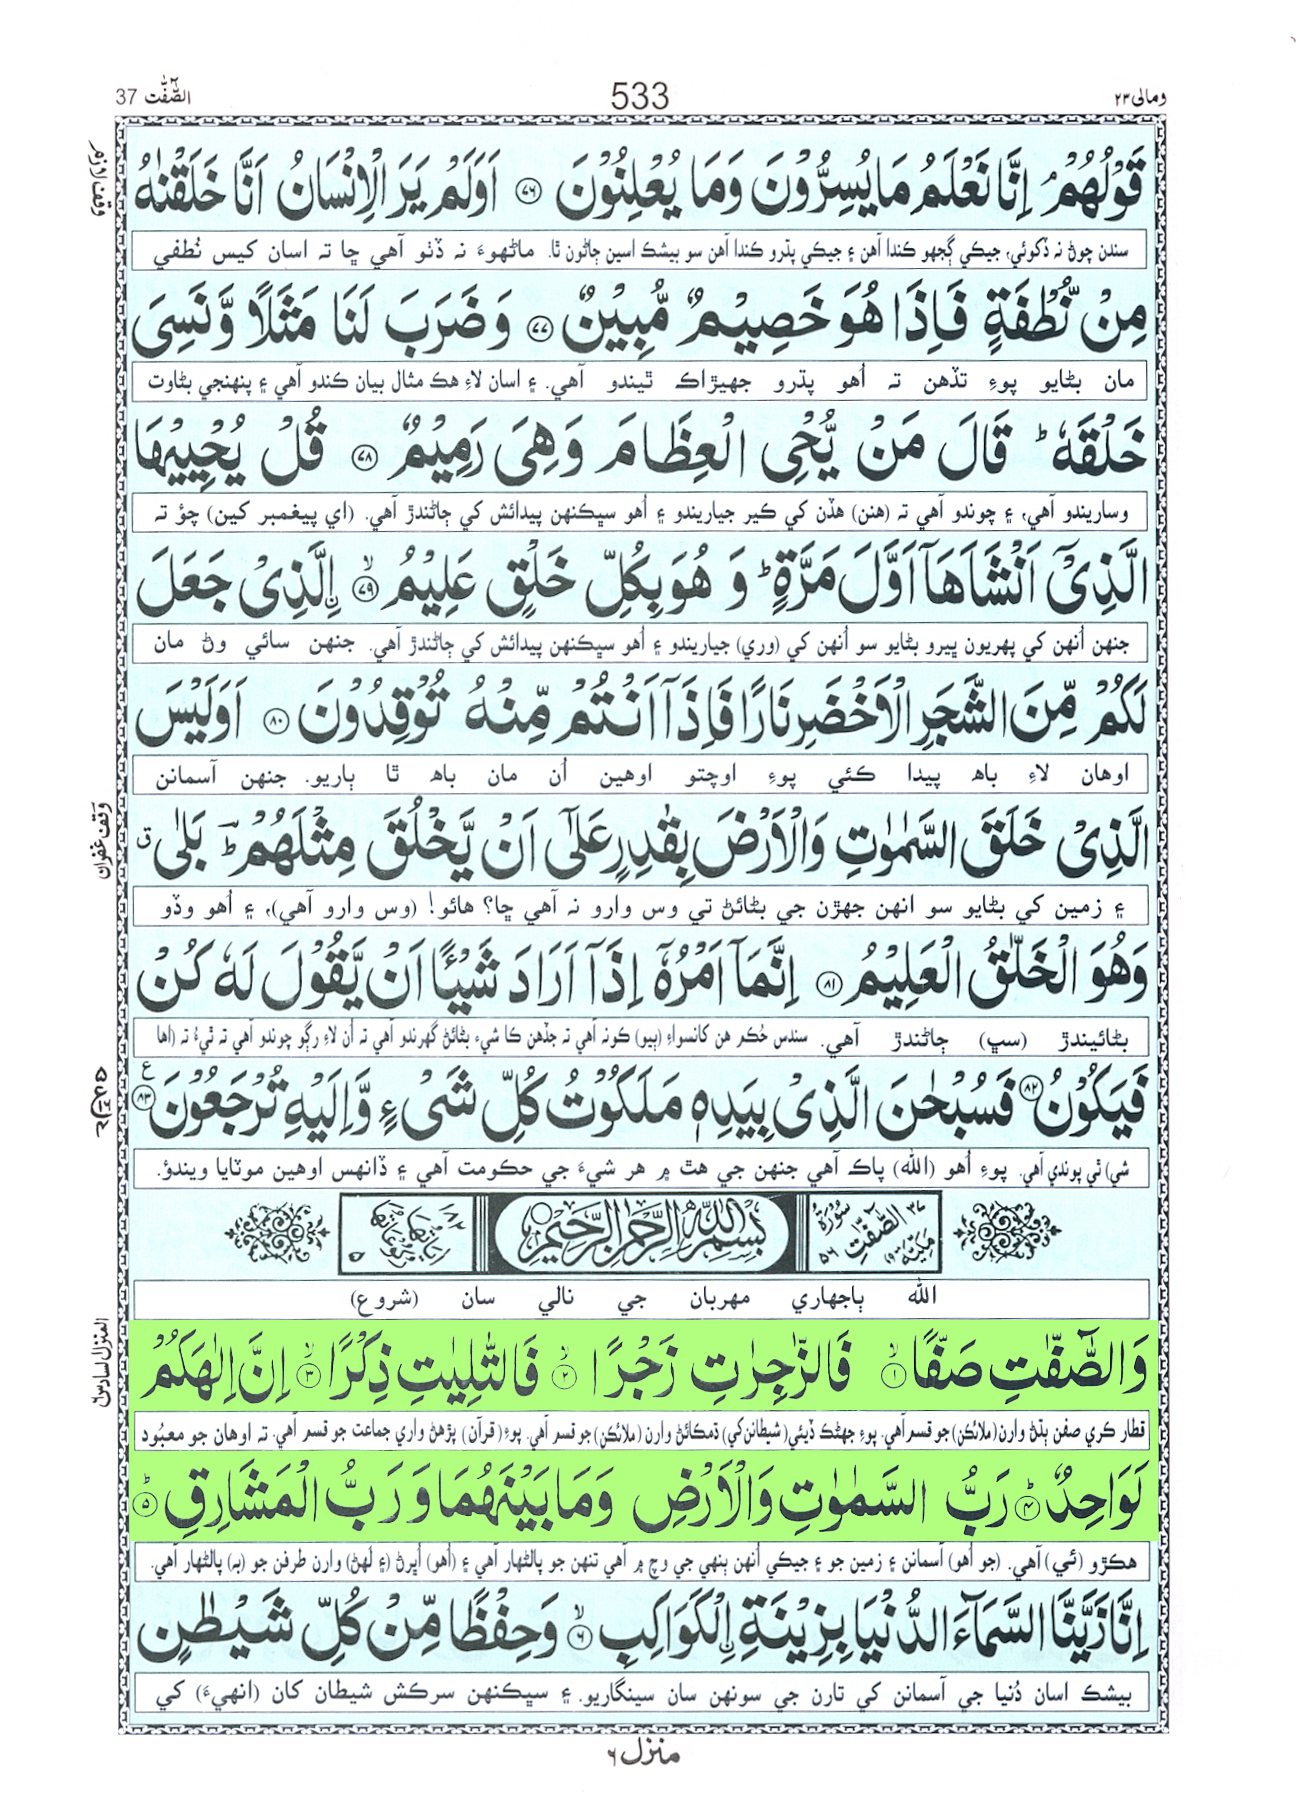 وَمالی ٢٣
533
الصّٰٓفّٰت 37
قَوْلُهُمْ ۘ اِنَّا نَعْلَمُ مَا یُسِرُّوْنَ وَمَا یُعْلِنُوْنَ ﴿٧٦﴾ اَوَلَمْ یَرَ الْاِنْسَانُ اَنَّا خَلَقْنٰهُ
سندن چوڻ نہ ڏکوئي، جيڪي ڳجهو ڪندا آهن ۽ جيڪي پڌرو ڪندا آهن سو بيشڪ اسين ڄاڻون ٿا. ماڻهوءَ نہ ڏٺو آهي ڇا تہ اسان کيس نُطفي
مِنْ نُّطْفَةٍ فَاِذَا هُوَ خَصِیْمٌ مُّبِیْنٌ ﴿٧٧﴾ وَ ضَرَبَ لَنَا مَثَلًا وَّ نَسِیَ
مان بڻايو پوءِ تڏهن تہ اُهو پڌرو جهيڙاڪ ٿيندو آهي. ۽ اسان لاءِ هڪ مثال بيان ڪندو آهي ۽ پنهنجي بڻاوت
خَلْقَهٗ ؕ قَالَ مَنْ یُّحْیِ الْعِظَامَ وَهِیَ رَمِیْمٌ ﴿٧٨﴾ قُلْ یُحْیِیْهَا
وساريندو آهي، ۽ چوندو آهي تہ (هنن) هڏن کي ڪير جياريندو ۽ اُهو سڀڪنهن پيدائش کي ڄاڻندڙ آهي. (اي پيغمبر کين) چؤ تہ
الَّذِیْۤ اَنْشَاَهَاۤ اَوَّلَ مَرَّةٍ ؕ وَ هُوَ بِكُلِّ خَلْقٍ عَلِیْمُ ۙ﴿٧٩﴾ ۨالَّذِیْ جَعَلَ
جنهن اُنهن کي پهريون ڀيرو بڻايو سو اُنهن کي (وري) جياريندو ۽ اُهو سڀڪنهن پيدائش کي ڄاڻندڙ آهي. جنهن سائي وڻ مان
لَكُمْ مِّنَ الشَّجَرِ الْاَخْضَرِ نَارًا فَاِذَاۤ اَنْتُمْ مِّنْهُ تُوْقِدُوْنَ ﴿٨٠﴾ اَوَلَیْسَ
اوهان لاءِ باھ پيدا ڪئي پوءِ اوچتو اوهين اُن مان باھ ٿا ٻاريو. جنهن آسمانن
الَّذِیْ خَلَقَ السَّمٰوٰتِ وَالْاَرْضَ بِقٰدِرٍ عَلٰۤی اَنْ یَّخْلُقَ مِثْلَهُمْ ؕ بَلٰی ۗ
۽ زمين کي بڻايو سو انهن جهڙن جي بڻائڻ تي وس وارو نہ آهي ڇا؟ هائو! (وس وارو آهي)، ۽ اُهو وڏو
وَهُوَ الْخَلّٰقُ الْعَلِیْمُ ﴿٨١﴾ اِنَّمَاۤ اَمْرُهٗۤ اِذَاۤ اَرَادَ شَیْـًٔا اَنْ یَّقُوْلَ لَهٗ كُنْ
بڻائيندڙ (سڀ) ڄاڻندڙ آهي. سندس حُڪم هن کانسواءِ (ٻيو) ڪونہ آهي تہ جڏهن ڪا شيءِ بڻائڻ گهرندو آهي تہ اُن لاءِ رڳو چوندو آهي تہ ٿيءُ تہ (اها
فَیَكُوْنُ ﴿٨٢﴾ فَسُبْحٰنَ الَّذِیْ بِیَدِهٖ مَلَكُوْتُ كُلِّ شَیْءٍ وَّاِلَیْهِ تُرْجَعُوْنَ ﴿٨٣﴾
شي) ٿي پوندي آهي. پوءِ اُهو (الله) پاڪ آهي جنهن جي هٿ ۾ هر شيءَ جي حڪومت آهي ۽ ڏانهس اوهين موٽايا ويندؤ.
٣٧ سُوْرَةُ الصّٰٓفّٰتِ مَكِّیَّةٌ ٥٦
بِسْمِ اللهِ الرَّحْمٰنِ الرَّحِیْمِ
اٰیَاتُهَا ١٨٢ رُكُوْعَاتُهَا ٥
الله ٻاجهاري مهربان جي نالي سان (شروع)
وَالصّٰٓفّٰتِ صَفًّا ۙ﴿١﴾ فَالزّٰجِرٰتِ زَجْرًا ۙ﴿٢﴾ فَالتّٰلِیٰتِ ذِكْرًا ۙ﴿٣﴾ اِنَّ اِلٰهَكُمْ
قطار ڪري صفن ٻڌڻ وارن (ملائڪن) جو قسم آهي. پوءِ جهڻڪ ڏيئي (شيطانن کي) ڌمڪائڻ وارن (ملائڪن) جو قسم آهي. پوءِ (قرآن) پڙهڻ واري جماعت جو قسم آهي. تہ اوهان جو معبُود
لَوَاحِدٌ ؕ﴿٤﴾ رَبُّ السَّمٰوٰتِ وَالْاَرْضِ وَمَا بَیْنَهُمَا وَ رَبُّ الْمَشَارِقِ ؕ﴿٥﴾
هڪڙو (ئي) آهي. (جو اُهو) آسمانن ۽ زمين جو ۽ جيڪي اُنهن ٻنهي جي وچ ۾ آهي تنهن جو پالڻهار آهي ۽ (اُهو) اُڀرڻ (۽ لهڻ) وارن طرفن جو (بہ) پالڻهار آهي.
اِنَّا زَیَّنَّا السَّمَآءَ الدُّنْیَا بِزِیْنَةِ ۨالْكَوَاكِبِ ۙ﴿٦﴾ وَحِفْظًا مِّنْ كُلِّ شَیْطٰنٍ
بيشڪ اسان دُنيا جي آسمانن کي تارن جي سونهن سان سينگاريو. ۽ سڀڪنهن سرڪش شيطان کان (انهيءَ) کي
منزل ٦
وقف لازم
وقف غفران
المنزل السادس